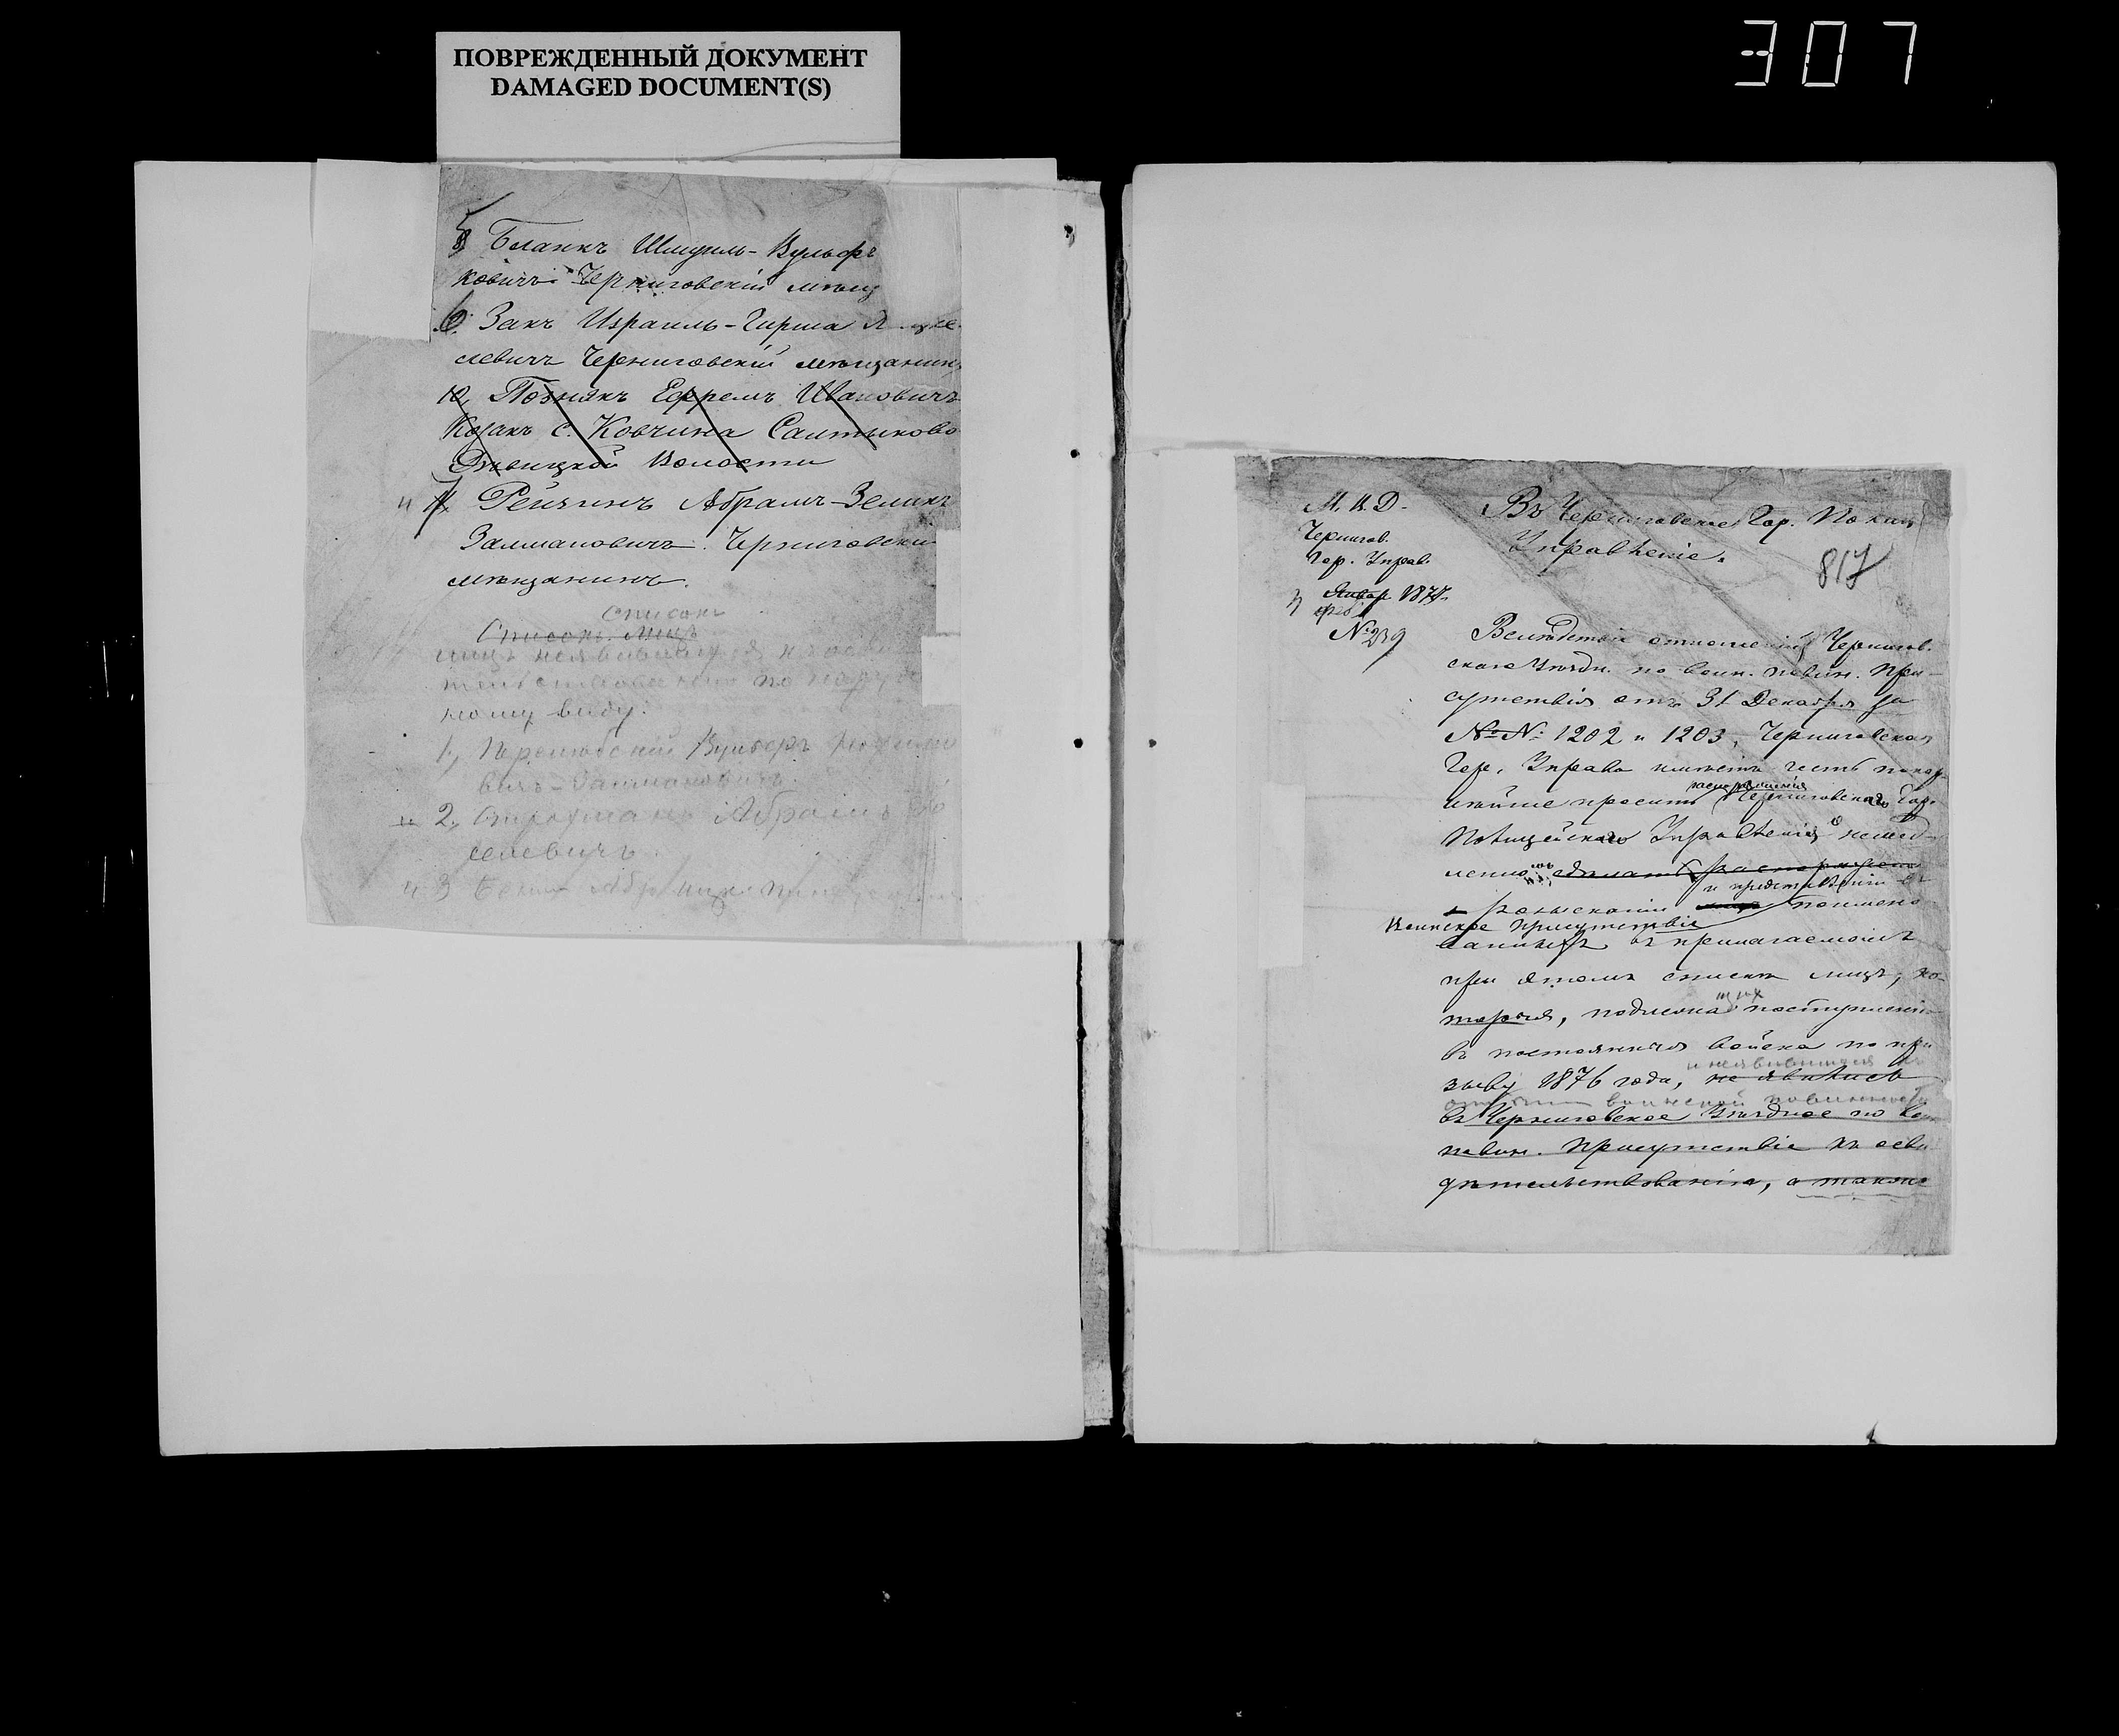 ПОВРЕЖДЕННЫЙ ДОКУМЕНТ
DAMAGED DOCUMENT(S)
307
5 Бланкъ Шмуиль-Вульфъ
ковичъ Черниговскій мѣщ
6. Закъ Израиль-Гирша
левичъ Черниговскій мѣщанинъ
10, Познякъ Ефремъ Ивановичъ
Козакъ с. Ковчина Салтыково
Дѣвицкой Волости
7 Рейчинъ Абрамъ-Зеликъ
Залмановичъ. Черниговскій
мѣщанинъ.
Списокъ
Списокъ лицъ
лицъ неявившихся къ осви
тельствованію по наруж
ному виду:
1, Вульфъ
вичъ-Залмановичъ.
2, Абрамъ
селевичъ.
3
М. В. Д.
Чернигов.
Гор. Управ.
Январ 1877
фев.
№ 239
Въ Черниговское Гор. Полиц
Управленіе.
817
Вслѣдствіе отношеній Чернигов.
скаго Уѣздн. по воин. повин. При-
сутствія отъ 31 Декабря за
№№ 1202 и 1203, Черниговская
Гор. Управа имѣетъ честь покор-
распоряженія
нѣйше просить Черниговскаго Гор.
Полицейскаго Управленія о немед-
ленно сдѣлать распоряжен
и представленіи въ
розысканіи поимено
Воинское присутствіе
ванныхъ въ прилагаемомъ
при этомъ спискѣ лицъ, ко-
щих
торыя, подлежа поступленію
въ постоянныя войска по при
и неявившихся
зыву 1876 года, не явились
воинской повинности
въ Черниговское Уѣздное по во
повин. Присутствіе къ осви
дѣтельствованію, а также